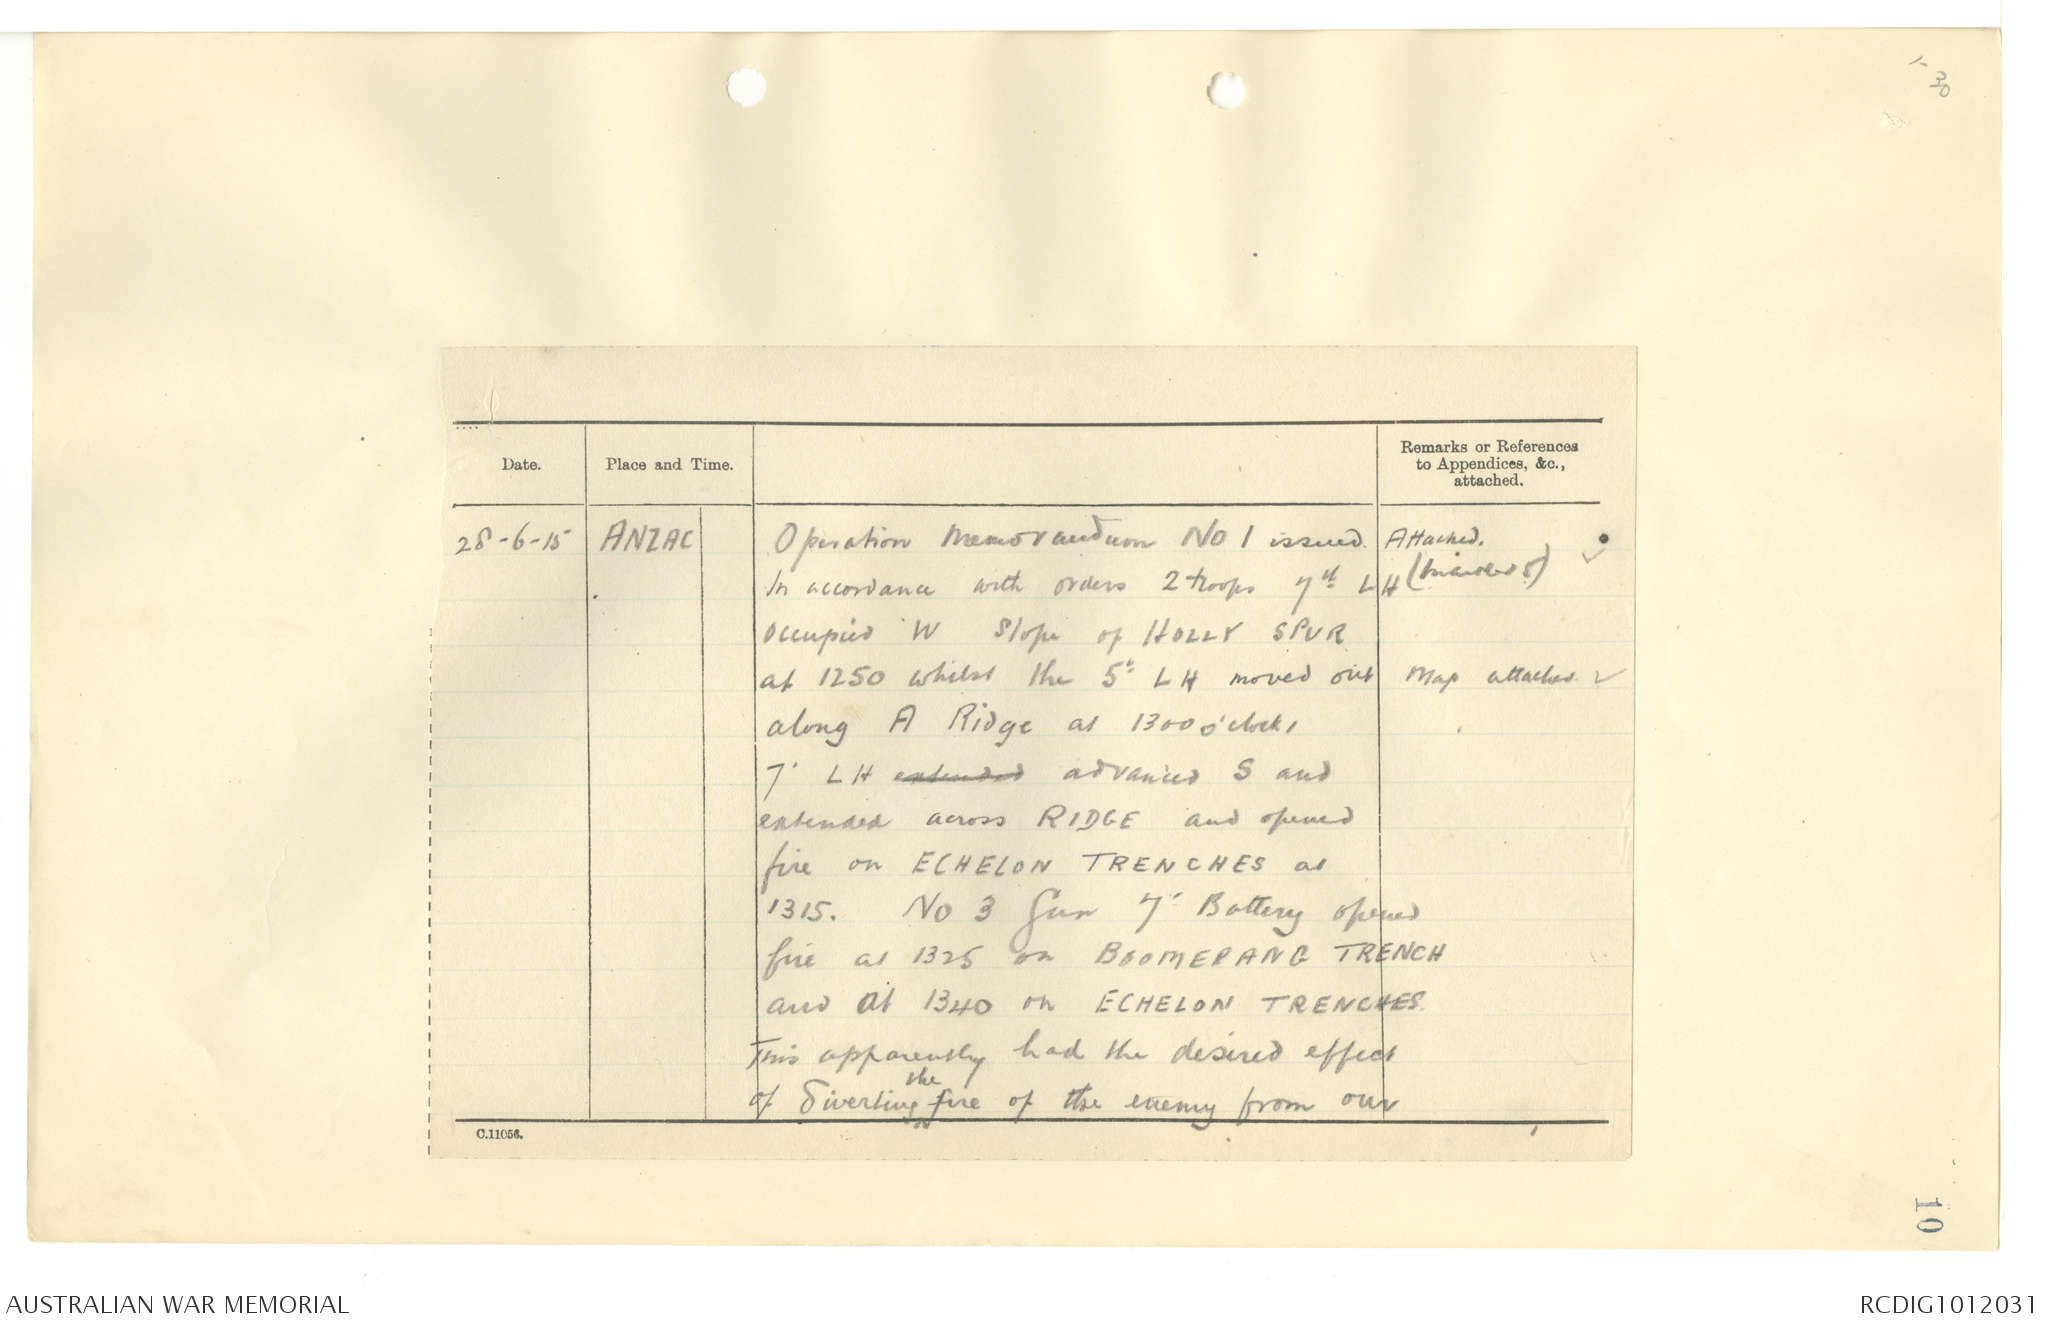 30
Date.
Place and Time.
Remarks or References
to Appendices, &c.,
attached.
28-6-15 ANZAC Operation Memorandum No 1 issued. Attached.
In accordance with orders 2 troops 7th LH
occupied W Slope of HOLLY SPUR
at 1250 whilst the 5th LH moved out Map attached ✓
along A Ridge at 1300 o'clock
7' LH extended advanced S and
extended across RIDGE and opened
fire on ECHELON TRENCHES at
1315. No 3 Gun 7' Battery opened
fire at 1325 on BOOMERANG TRENCH
and at 1340 on ECHELON TRENCHES.
This apparently had the desired effect
of diverting the fire of the enemy from our
C.11056.
10
AUSTRALIAN WAR MEMORIAL
RCDIG1012031